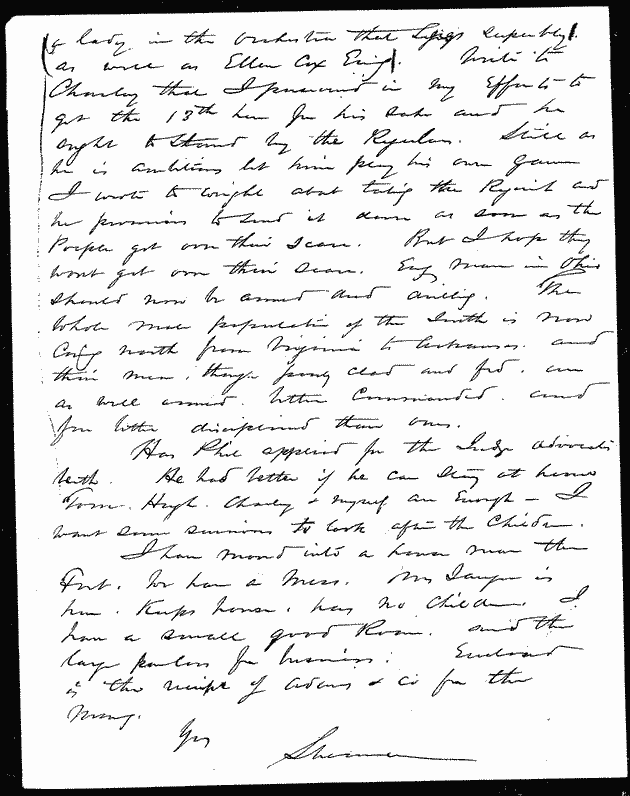 (& lady in the orchestra that Sings superbly).
as well as Ellen Cox Ewing). Write to
Charley that I persevered in my Efforts to
get the 13th here for his sake and he
ought to stand by the Regulars. Still as
he is ambitious let him play his own game
I wrote to Wright about taking the Regimt and
he promises to send it down as soon as the
People get over their scare. But I hope they
wont get over their scare. Every man in Ohio
should now be armed and drilling. The
Whole male population of the South is now
Coming north from Virginia to Arkansas. and
their men, though poorly clad and fed, are
as well armed, better Commanded, and
far better disciplined than ours.
Has Phil applied for the Judge Advocate
berth. He had better if he can stay at home
Tom, Hugh, Charley & myself are Enough — I
want some survivors to look after the Children.
I have moved into a house near the
Fort. We have a Mess. Mrs is
here. Keeps house, has no Children. I
have a small good Room. and the
large parlors for business. Enclosed
is the receipt of Adams & Co for the
money.
Yrs
Sherman